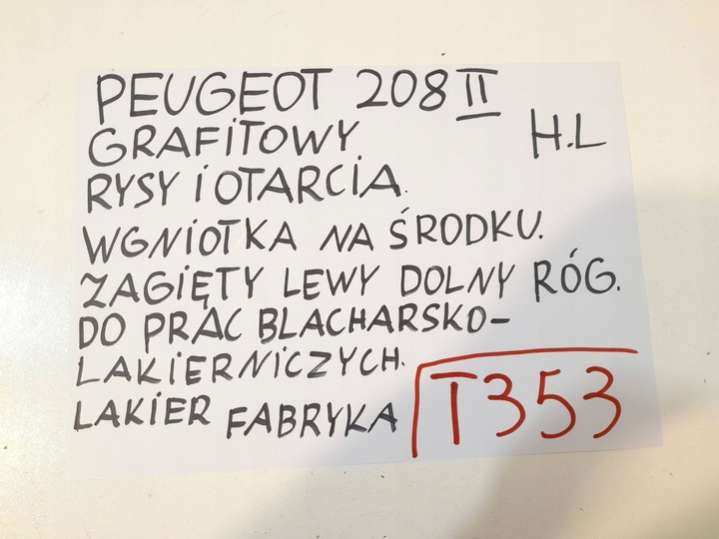 PEUGEOT 208 II
GRAFITOWY H.L
RYSY I OTARCIA.
WGNIOTKA NA ŚRODKU.
ZAGIĘTY LEWY DOLNY RÓG.
DO PRAC BLACHARSKO-
LAKIERNICZYCH.
LAKIER FABRYKA T353